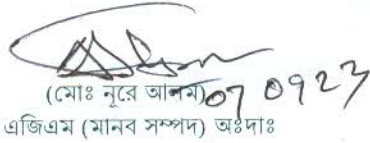 (মোঃ নূরে আলম)
070923
এজিএম (মানব সম্পদ) অঃদাঃ